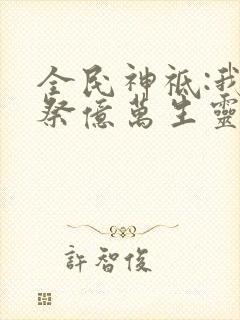 全民神祇:我
祭億萬生靈
許智俊